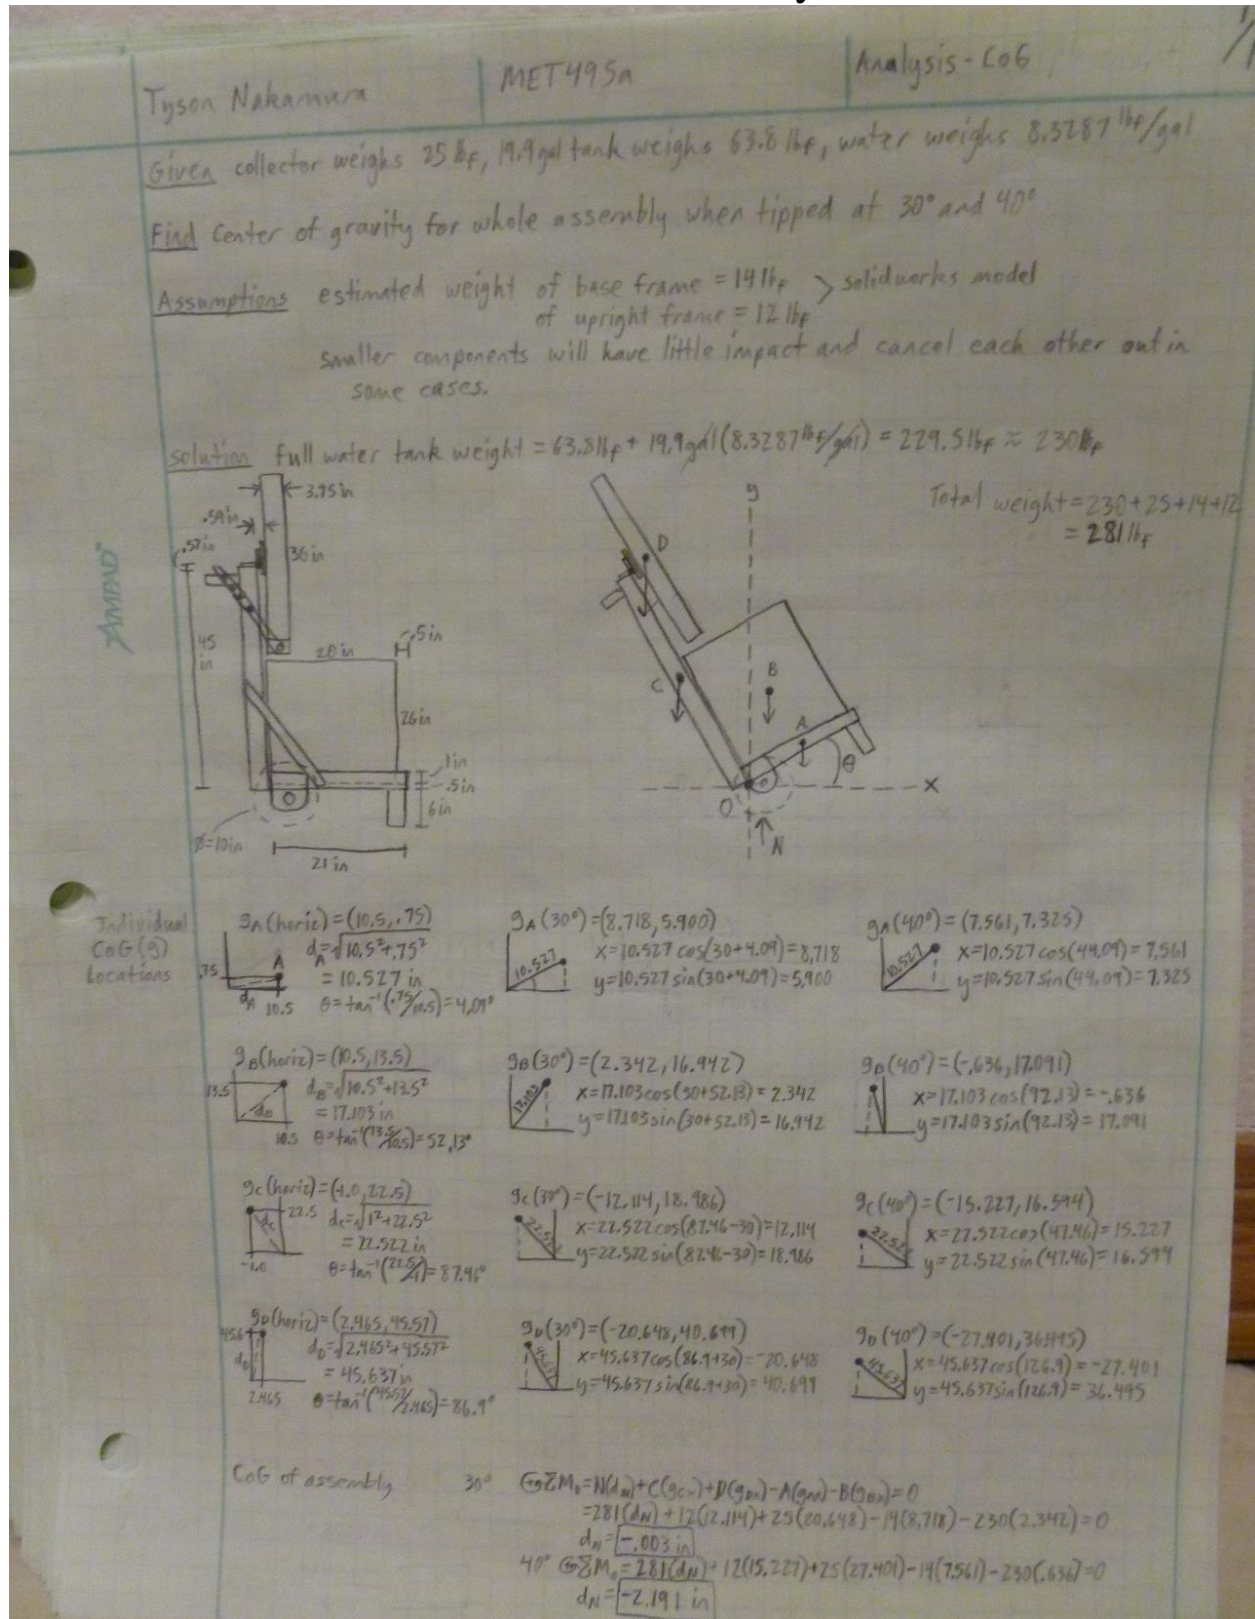 Tyson Nakamura
MET495a
Analysis - CoG
Given collector weighs 25 lbf, 19.9gal tank weighs 63.8 lbf, water weighs 8.3287 lbf/gal
Find Center of gravity for whole assembly when tipped at 30° and 40°
Assumptions estimated weight of base frame = 14 lbf > solidworks model
of upright frame = 12 lbf
smaller components will have little impact and cancel each other out in
some cases.
solution full water tank weight = 63.8lbf + 19.9gal(8.3287 lbf/gal) = 229.5 lbf ≈ 230lbf
Total weight = 230+25+14+12
= 281 lbf
3.75in
.59in
.57in
36in
45
in
20in
.5in
26in
1in
.5in
6in
Ø=10in
21in
y
D
C
B
A
θ
x
O
N
AMPAD™
Individual
CoG (g)
Locations
gA(horiz) = (10.5, .75)
dA=√10.5²+.75²
= 10.527 in
θ=tan⁻¹(.75/10.5)=4.09°
.75
A
dA
10.5
gA(30°)=(8.718,5.900)
x=10.527cos(30+4.09)=8.718
y=10.527sin(30+4.09)=5.900
10.527
gA(40°) = (7.561,7.325)
x=10.527cos(44.09)=7.561
y=10.527sin(44.09)=7.325
10.527
gB(horiz)=(10.5,13.5)
dB=√10.5²+13.5²
= 17.103 in
θ=tan⁻¹(13.5/10.5)=52.13°
13.5
dB
10.5
gB(30°)=(2.342, 16.942)
x=17.103cos(30+52.13)=2.342
y=17.103sin(30+52.13)=16.942
17.103
gB(40°)=(-.636,17.091)
x=17.103cos(92.13)=-.636
y=17.103sin(92.13)=17.091
gC(horiz)=(-1.0,22.5)
dC=√1²+22.5²
= 22.522 in
θ=tan⁻¹(22.5/1)=87.46°
22.5
dC
-1.0
gC(30°)=(-12.114,18.986)
x=22.522cos(87.46-30)=12.114
y=22.522sin(87.46-30)=18.986
gC(40°)=(-15.227,16.594)
x=22.522cos(47.46)=15.227
y=22.522sin(47.46)=16.594
gD(horiz)=(2.465,45.57)
dD=√2.465²+45.57²
= 45.637 in
θ=tan⁻¹(45.57/2.465)=86.9°
45.6
dD
2.465
gD(30°)=(-20.648,40.699)
x=45.637cos(86.9+30)=-20.648
y=45.637sin(86.9+30)=40.699
45.637
gD(40°)=(-27.401,36.495)
x=45.637cos(126.9)=-27.401
y=45.637sin(126.9)=36.495
45.637
CoG of assembly
30° ΣMo=N(dN)+C(gCx)+D(gDx)-A(gAx)-B(gBx)=0
=281(dN)+12(12.114)+25(20.648)-14(8.718)-230(2.342)=0
dN=-.003 in
40° ΣMo=281(dN)+12(15.227)+25(27.401)-14(7.561)-230(.636)=0
dN=-2.191 in